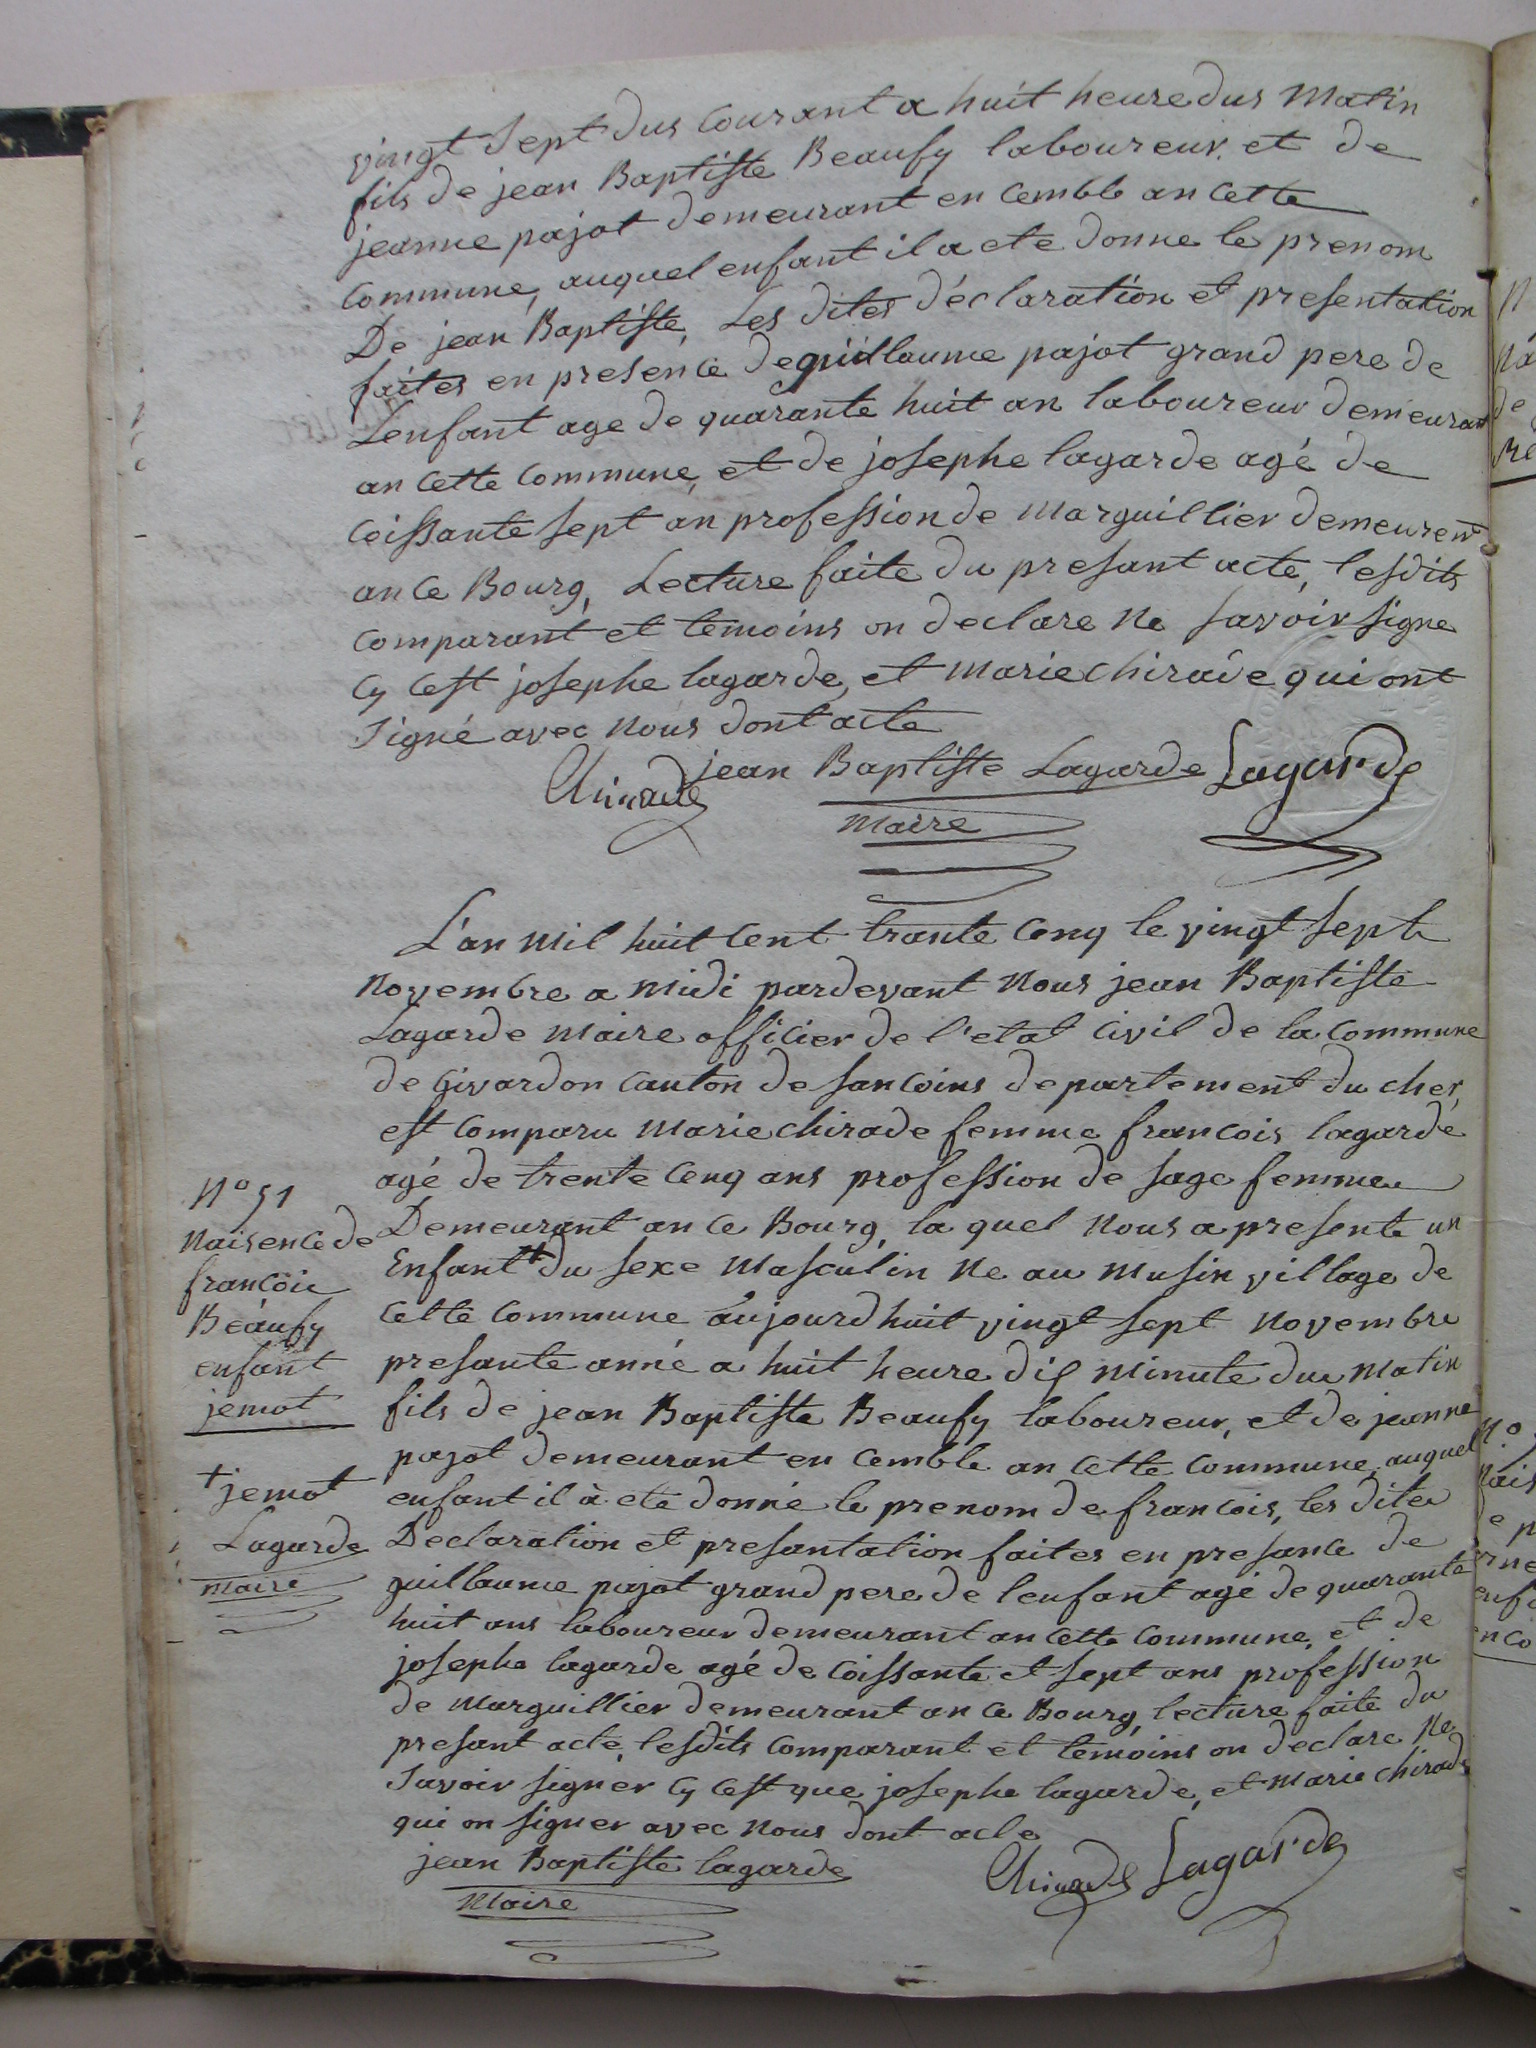 vingt Sept dus courant a huit heure dus Matin
fils de jean Baptiste Beaufy laboureur et de
jeanne pajot demeurant en cemble an cette
commune, auquel enfant il a ete donne le prenom
De jean Baptiste, Les dites déclaration et presentation
faites en presence de guillaume pajot grand pere de
Lenfant age de quarante huit an laboureur demeurant
an cette commune, et de josephe lagarde agé de
coissante sept an profession de Marguillier demeurent
an ce Bourg, Lecture faite du presant acte, lesdits
comparant et temoins on declare Ne savoir signe
cy cest josephe lagarde, et Marie chirade qui ont
Signé avec Nous dont acte
Chirade jean Baptiste Lagarde Lagarde
Maire
L'an Mil huit cent trante cenq le vingt Sept
Novembre a Midi pardevant Nous jean Baptiste
Lagarde Maire officier de l'etat civil de la commune
de Givardon canton de Sancoins departement du cher,
est comparu Marie chirade femme francois lagarde
agé de trente cenq ans profession de sage femme
Demeurant an ce Bourg, la quel Nous a presente un
Enfant + du sexe Masculin Ne au Musin village de
cette commune aujourdhuit vingt sept Novembre
presante anné a huit heure dix Minute du Matin
fils de jean Baptiste Beaufy laboureur, et de jeanne
pajot demeurant en cemble an cette commune, auquel
enfant il à ete donné le prenom de francois, les dites
Declaration et presantation faites en presance de
guillaume pajot grand pere de lenfant agé de quarante
huit ans laboureur demeurant an cette commune, et de
josephe lagarde agé de coissante et sept ans profession
de Marguillier demeurant an ce Bourg, lecture faite du
presant acte, lesdits comparant et temoins on declare Ne
Savoir signer cy cest que josephe lagarde, et Marie chirade
qui on signer avec Nous dont acte
jean Baptiste lagarde Chirade Lagarde
Maire
N° 51
Naisence de
francois
Beaufy
enfant
jemot
+ jemot
Lagarde
Maire